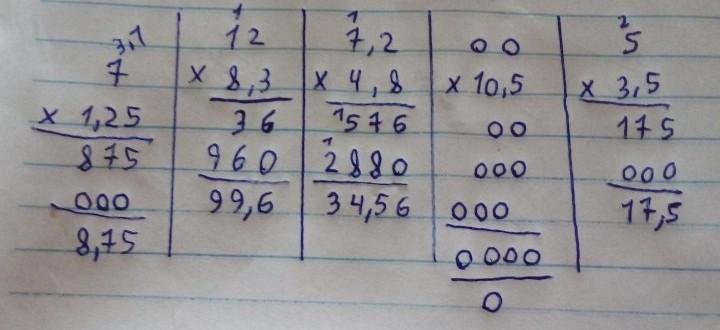 3,1
7
× 1,25
875
000
8,75
1
12
× 8,3
36
960
99,6
1
7,2
× 4,8
1576
1
2880
34,56
00
× 10,5
00
000
000
0000
0
2
5
× 3,5
175
000
17,5